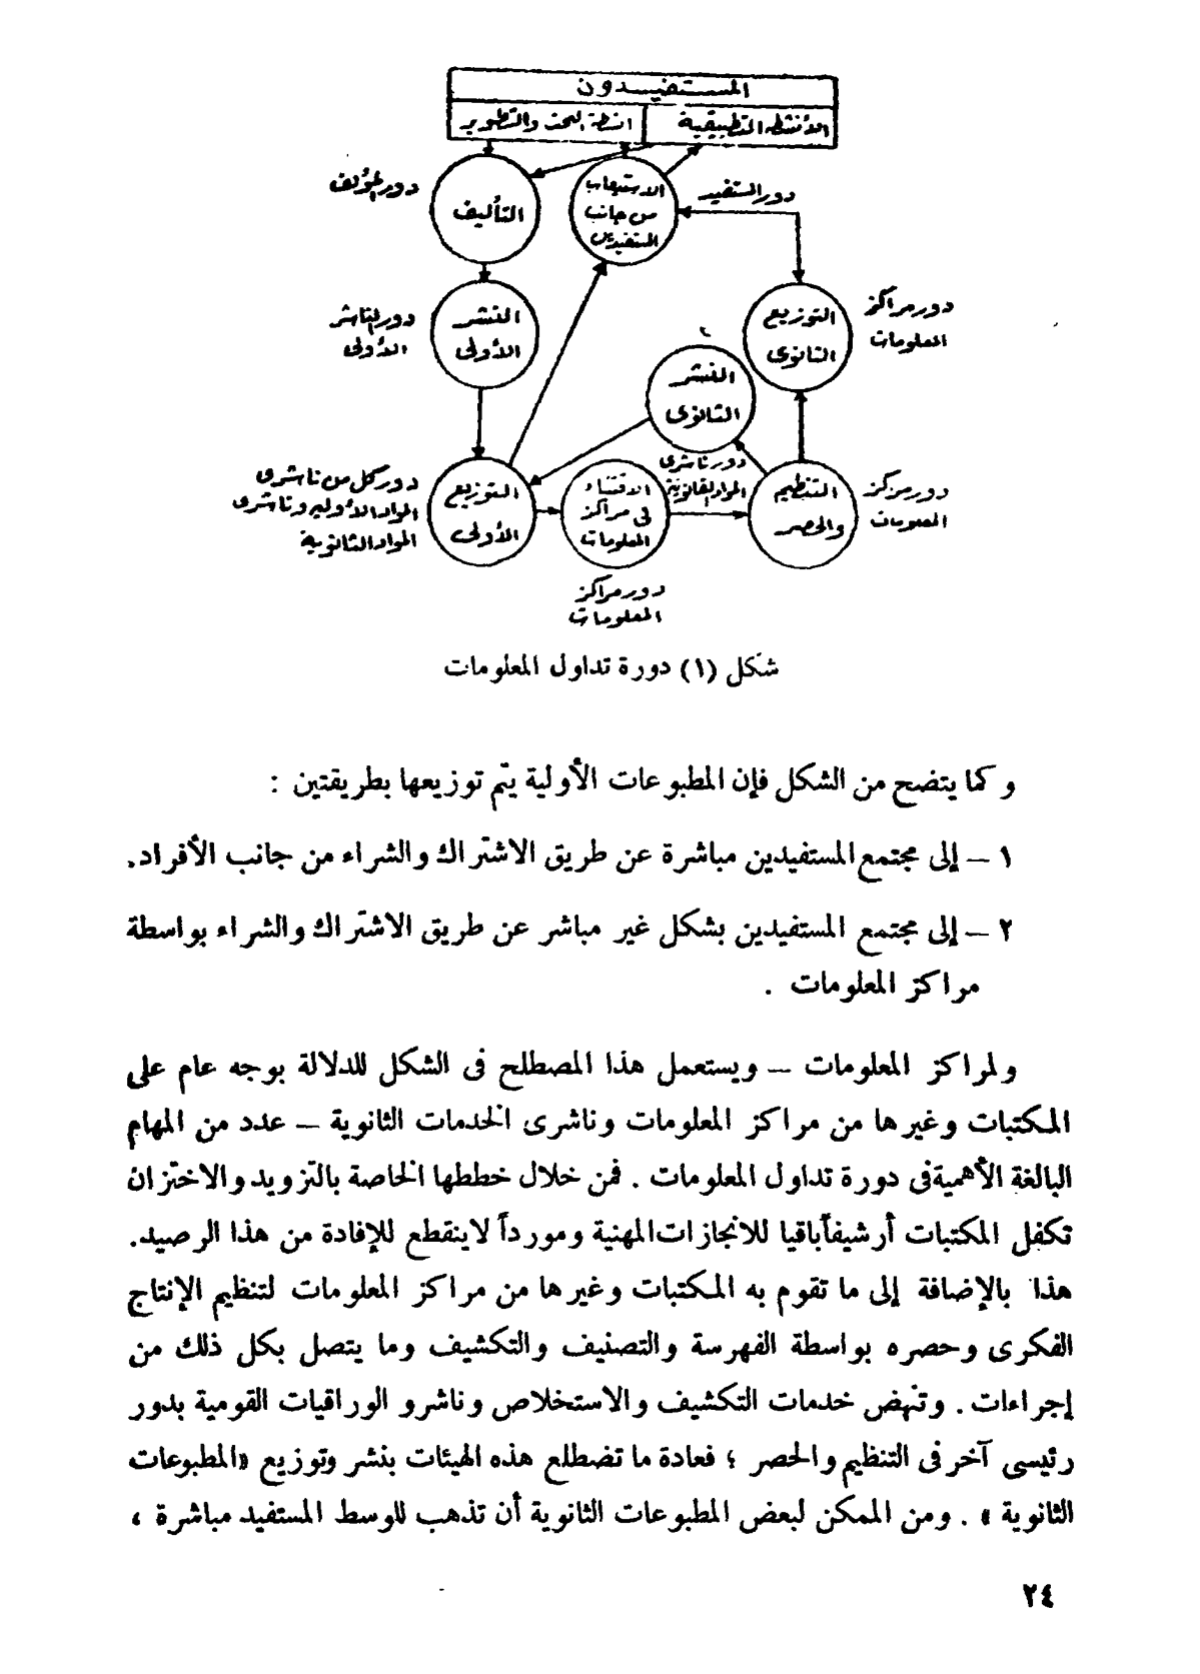 المستفيدون
الأنشطة التطبيقية
انشطة البحث والتطوير
دور المؤلف
التأليف
الاستيعاب
من جانب
المستفيدين
دور المستفيد
دور الناشر
الأولى
النشر
الأولى
التوزيع
الثانوى
دور مراكز
المعلومات
النشر
الثانوى
دور كل من ناشرى
المواد الأولية وناشرى
المواد الثانوية
التوزيع
الأولى
الاقتناء
فى مراكز
المعلومات
دور ناشرى
المواد الثانوية
التنظيم
والحصر
دور مركز
المعلومات
دور مراكز
المعلومات
شكل (١) دورة تداول المعلومات
وكما يتضح من الشكل فإن المطبوعات الأولية يتم توزيعها بطريقتين :
١ – إلى مجتمع المستفيدين مباشرة عن طريق الاشتراك والشراء من جانب الأفراد.
٢ – إلى مجتمع المستفيدين بشكل غير مباشر عن طريق الاشتراك والشراء بواسطة
مراكز المعلومات .
ولمراكز المعلومات – ويستعمل هذا المصطلح فى الشكل للدلالة بوجه عام على
المكتبات وغيرها من مراكز المعلومات وناشرى الخدمات الثانوية – عدد من المهام
البالغة الأهمية فى دورة تداول المعلومات . فمن خلال خططها الخاصة بالتزويد والاختزان
تكفل المكتبات أرشيفاً باقيا للانجازات المهنية ومورداً لاينقطع للإفادة من هذا الرصيد.
هذا بالإضافة إلى ما تقوم به المكتبات وغيرها من مراكز المعلومات لتنظيم الإنتاج
الفكرى وحصره بواسطة الفهرسة والتصنيف والتكشيف وما يتصل بكل ذلك من
إجراءات . وتنهض خدمات التكشيف والاستخلاص وناشرو الوراقيات القومية بدور
رئيسى آخر فى التنظيم والحصر ؛ فعادة ما تضطلع هذه الهيئات بنشر وتوزيع «المطبوعات
الثانوية » . ومن الممكن لبعض المطبوعات الثانوية أن تذهب للوسط المستفيد مباشرة ،
٢٤